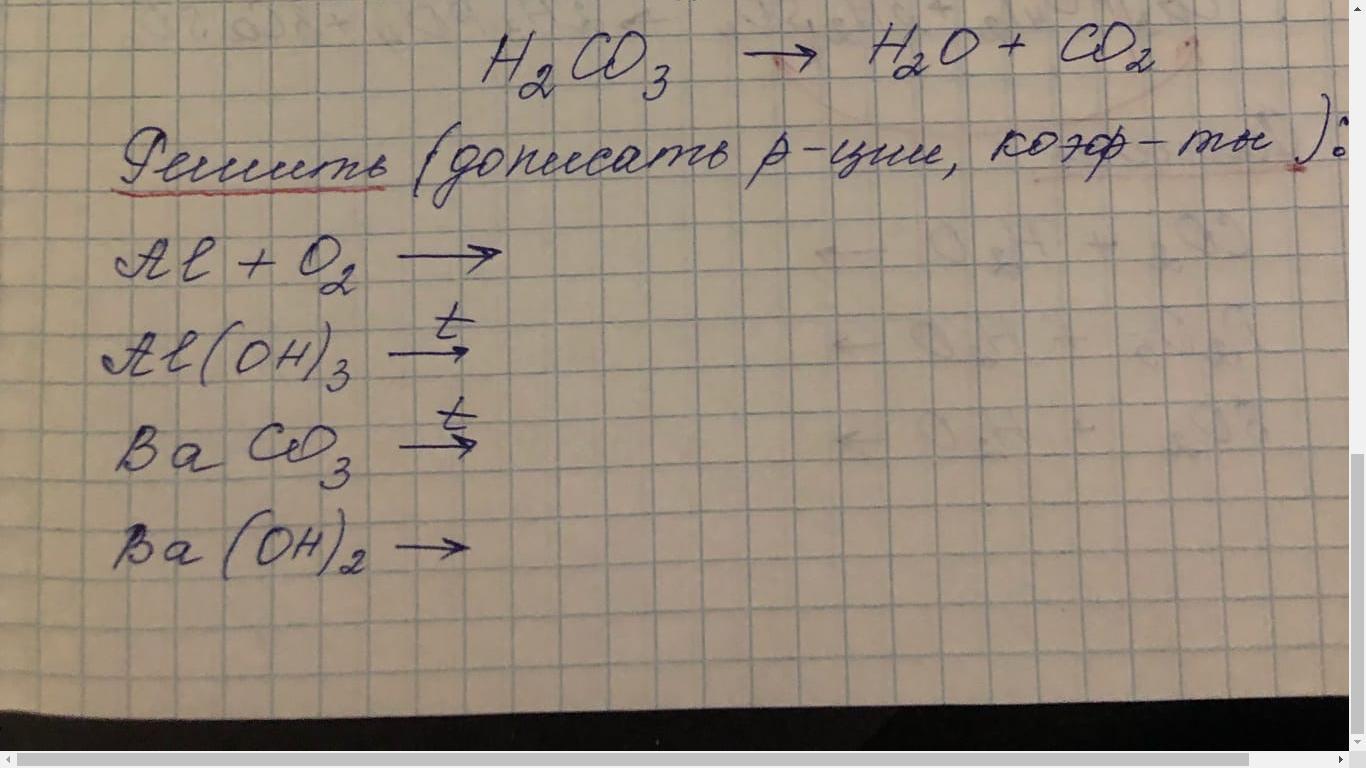 H₂CO₃ → H₂O + CO₂
Решить (дописать р-ции, коэф-ты):
Al + O₂ →
Al(OH)₃ t→
BaCO₃ t→
Ba(OH)₂ →